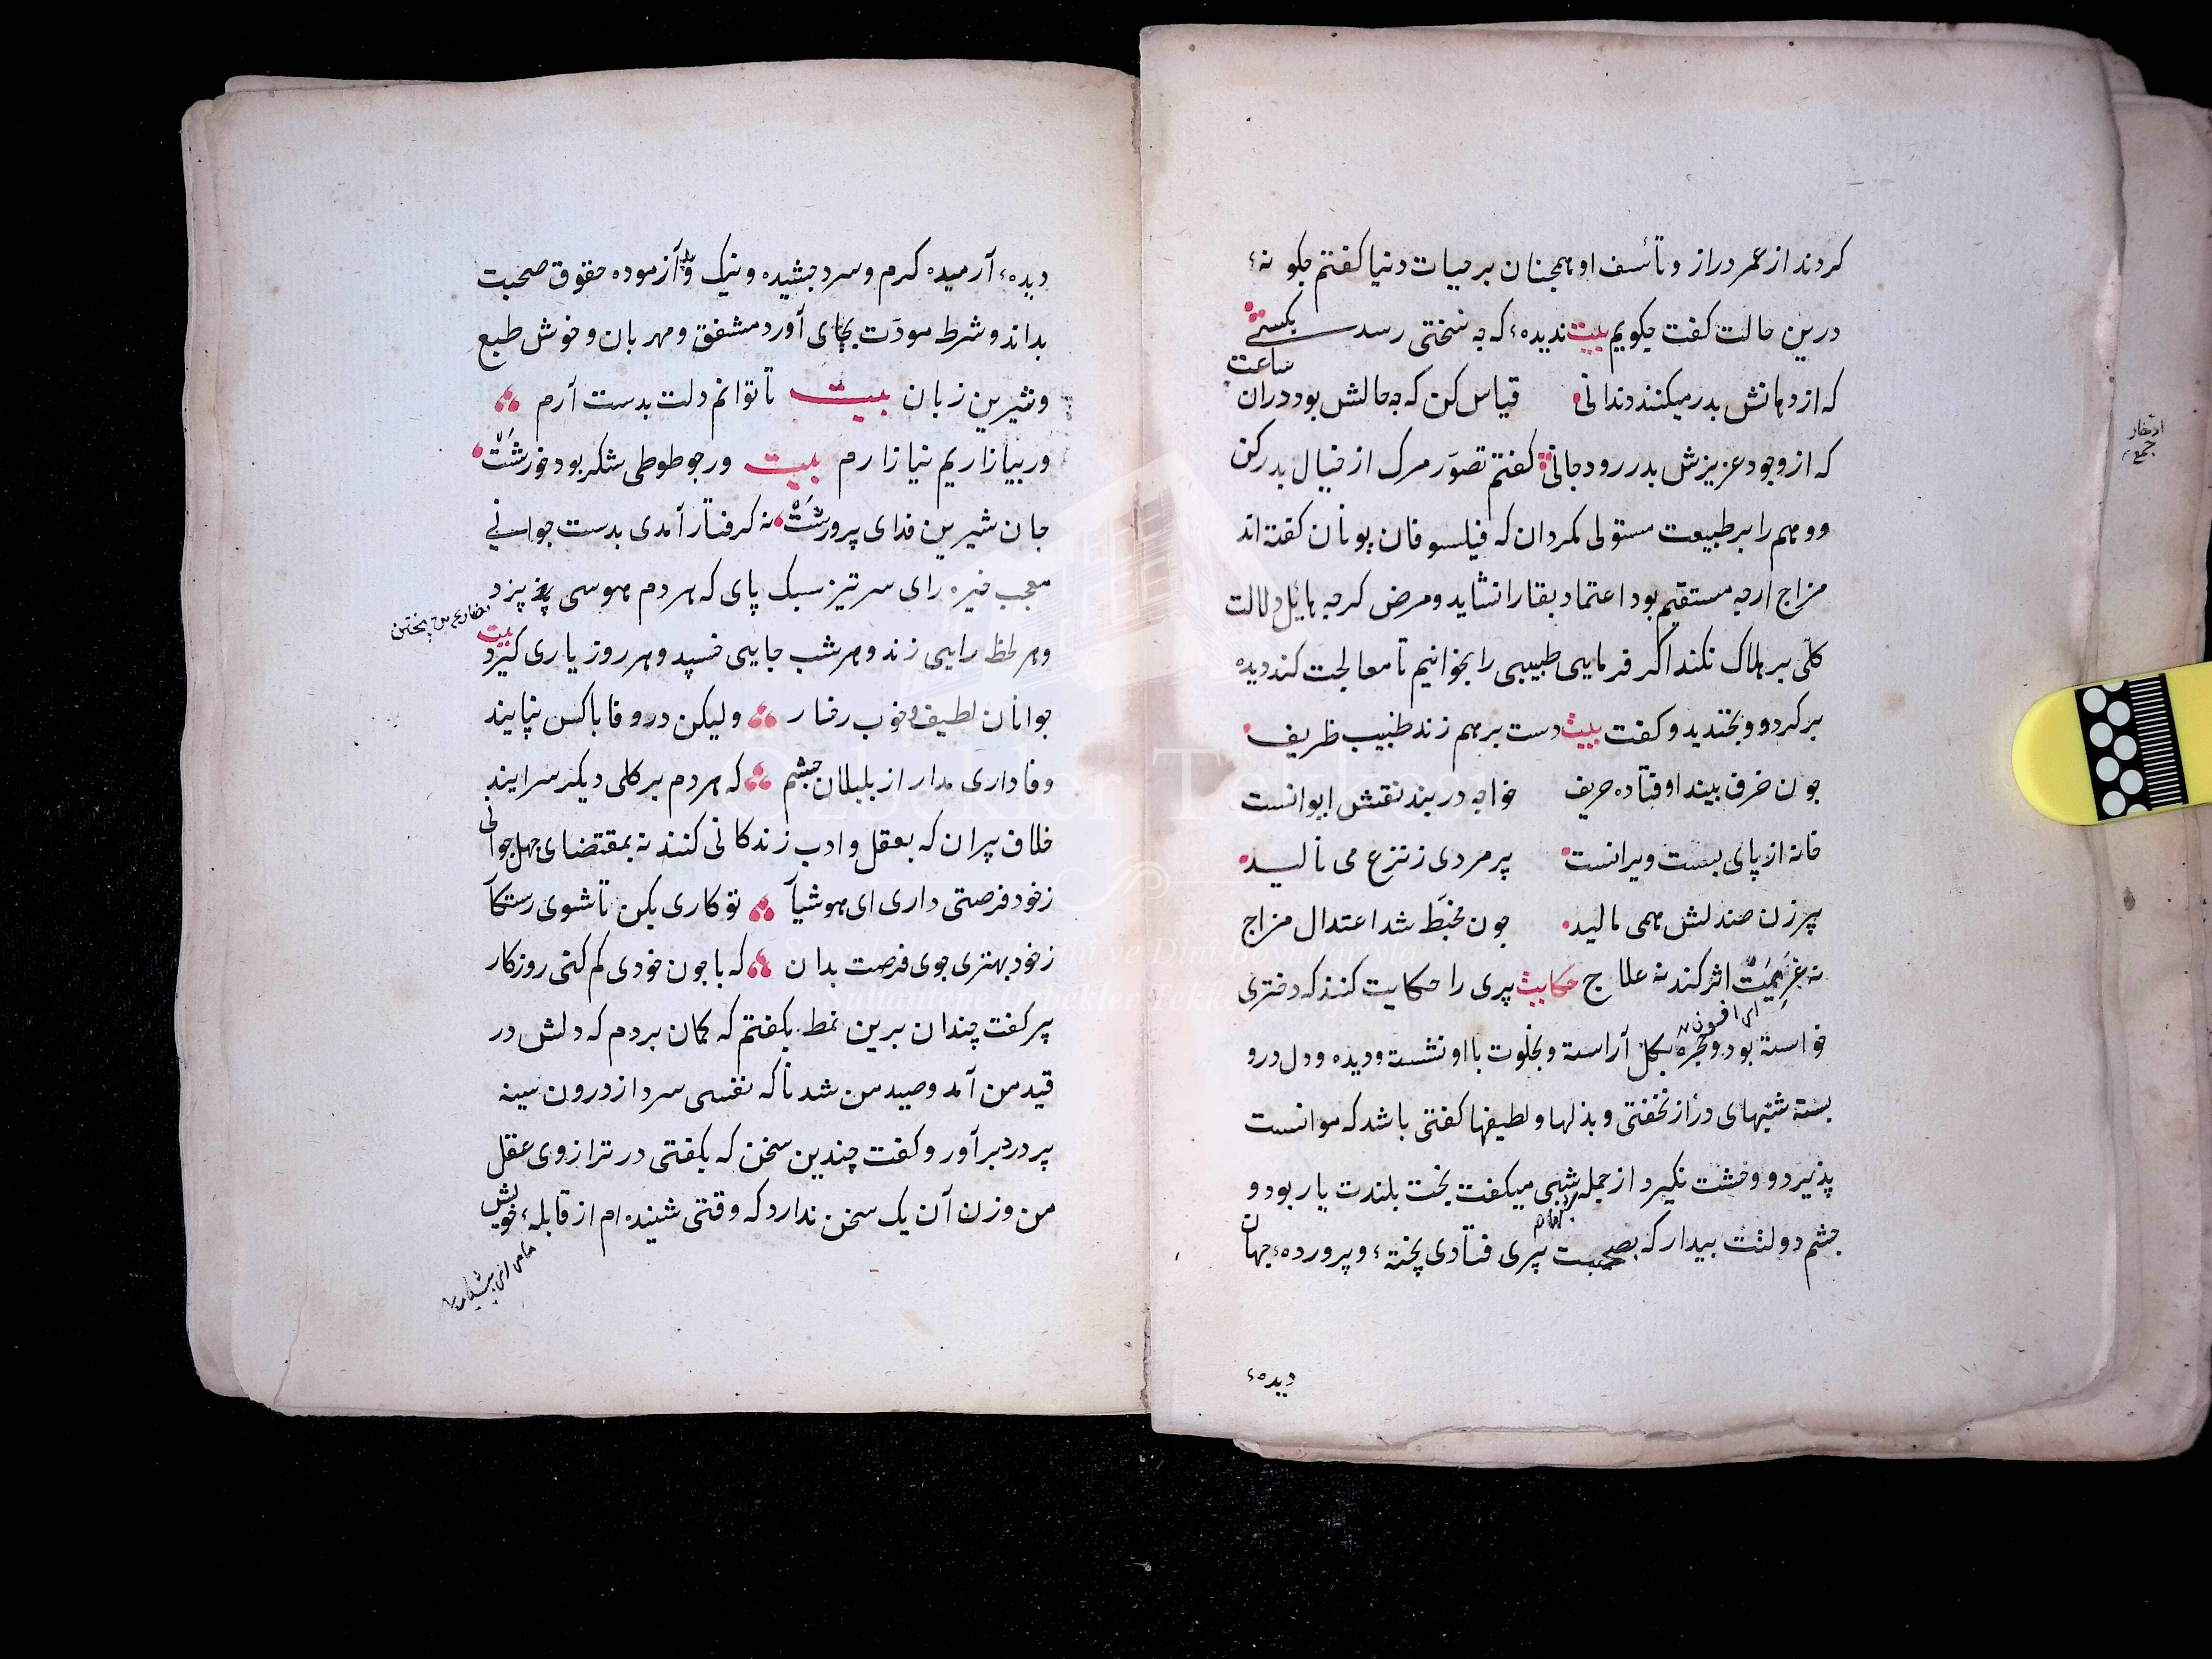 كردند از عمر دراز و تأسف او همچنان بر حيات دنيا كفتم چكونهٔ
درين حالت كفت چكويم بيت نديدهٔ كه چه سختى رسد بكسى
كه از دهانش بدر ميكنند دندانى قياس كن كه چه حالش بود دران ساعت
كه از وجود عزيزش بدر رود جانى كفتم تصوّر مرك از خيال بدر كن
و وهم را بر طبيعت مستولى مكردان كه فيلسوفان يونان كفته اند
مزاج ارچه مستقيم بود اعتماد بقا را نشايد و مرض كرچه هايل دلالت
كلّى بر هلاك نكند اكر فرمايى طبيبى را بخوانيم تا معالجت كند ديده
بر كرد و بخنديد و كفت بيت دست بر هم زند طبيب ظريف
چون خرف بيند اوفتاده حريف خواجه در بند نقش ايوانست
خانه از پاى بست ويرانست پير مردى ز نزع مى ناليد
پير زن صندلش همى ماليد چون مخبَّط شد اعتدال مزاج
نه عَزيمَتْ اثر كند نه علاج حكايت پيرى را حكايت كنند كه دخترى
اى افسون
خواسته بود و حجره بكل آراسته و بخلوت با او نشسته و ديده و دل درو
بسته شبهاى دراز نخفتى و بذلها و لطيفها كفتى باشد كه موانست
پذيرد و وحشت نكيرد از جمله شبى ميكفت بخت بلندت يار بود و
چشم دولتت بيدار كه بصحبت پيرى فتادى پختهٔ و پروردهٔ جهان
ديدهٔ
ديدهٔ آرميده كرم و سرد چشيده و نيك و بد آزموده حقوق صحبت
بداند و شرط مودّت بجاى آورد مشفق و مهربان و خوش طبع
و شيرين زبان بيت تا توانم دلت بدست آرم
ور بيازاريم نيازارم بيت ور چو طوطى شكر بود خورشَتْ
جان شيرين فداى پرورشَتْ نه كرفتار آمدى بدست جوانى
معجب خيره راى سر تيز سبك پاى كه هر دم هوسى پزد
مضارع من پختن
و هر لحظه رايى زند و هر شب جايى خسپد و هر روز يارى كيرد بيت
جوانان لطيف و خوب رفتار وليكن در وفا با كس نپايند
وفادارى مدار از بلبلان چشم كه هر دم بر كلى ديكر سرايند
خلاف پيران كه بعقل و ادب زندكانى كنند نه بمقتضاى جهل جوانى
ز خود فرصتى دارى اى هوشيا تو كارى بكن تا شوى رستكا
ز خود بهترى جوى فرصت بدان كه با چون خودى كم كنى روزكار
پير كفت چندان برين نمط بكفتم كه كمان بردم كه دلش در
قيد من آمد و صيد من شد ناكه نفسى سرد از درون سينه
پر درد بر آور و كفت چندين سخن كه بكفتى در ترازوى عقل
من وزن آن يك سخن ندارد كه وقتى شينده ام از قابلهٔ خويش